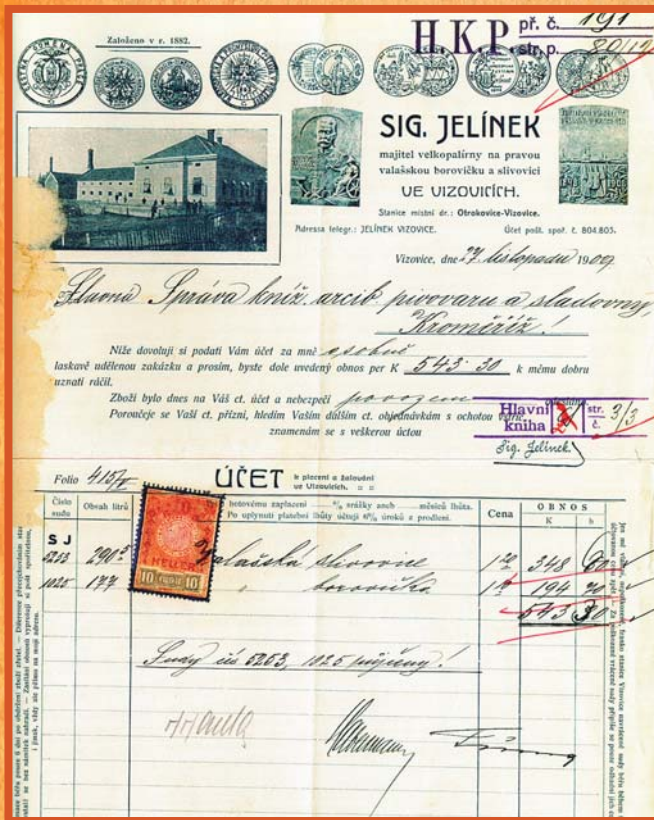 Založeno v r. 1882.
H.K.P. př. č. 191
str. p.
SIG. JELÍNEK
majitel velkopalírny na pravou
valašskou borovičku a slivovici
VE VIZOVICÍCH.
Stanice místní dr.: Otrokovice-Vizovice.
Adressa telegr.: JELÍNEK VIZOVICE. Účet pošt. spoř. č. 804.805.
Vizovice, dne 27. listopadu 1909
Slavná Správa kníž. arcib. pivovaru a sladovny,
Kroměříž!
Níže dovoluji si podati Vám účet za mně osobně
laskavě udělenou zakázku a prosím, byste dole uvedený obnos per K 543·30 k mému dobru
uznati ráčil.
Zboží bylo dnes na Váš ct. účet a nebezpečí povozem
Poroučeje se Vaší ct. přízni, hledím Vaším dalším ct. objednávkám s ochotou
znamenám se s veškerou úctou
Hlavní kniha str. č. 3/3
Sig. Jelínek
Folio 415/
ÚČET k placení a žalování
ve Vizovicích.
hotovému zaplacení % srážky aneb měsíců lhůta.
Po uplynutí platební lhůty účtuji 6% úroků z prodlení.
Číslo sudu Obsah litrů Cena OBNOS
K h
S J
5253 290⁵ Valašská slivovice 1²⁰ 348 60
1025 177 " borovička 1¹⁰ 194 70
543 30
HELLER
10 10
Sudy čís 5253, 1025 půjčeny!